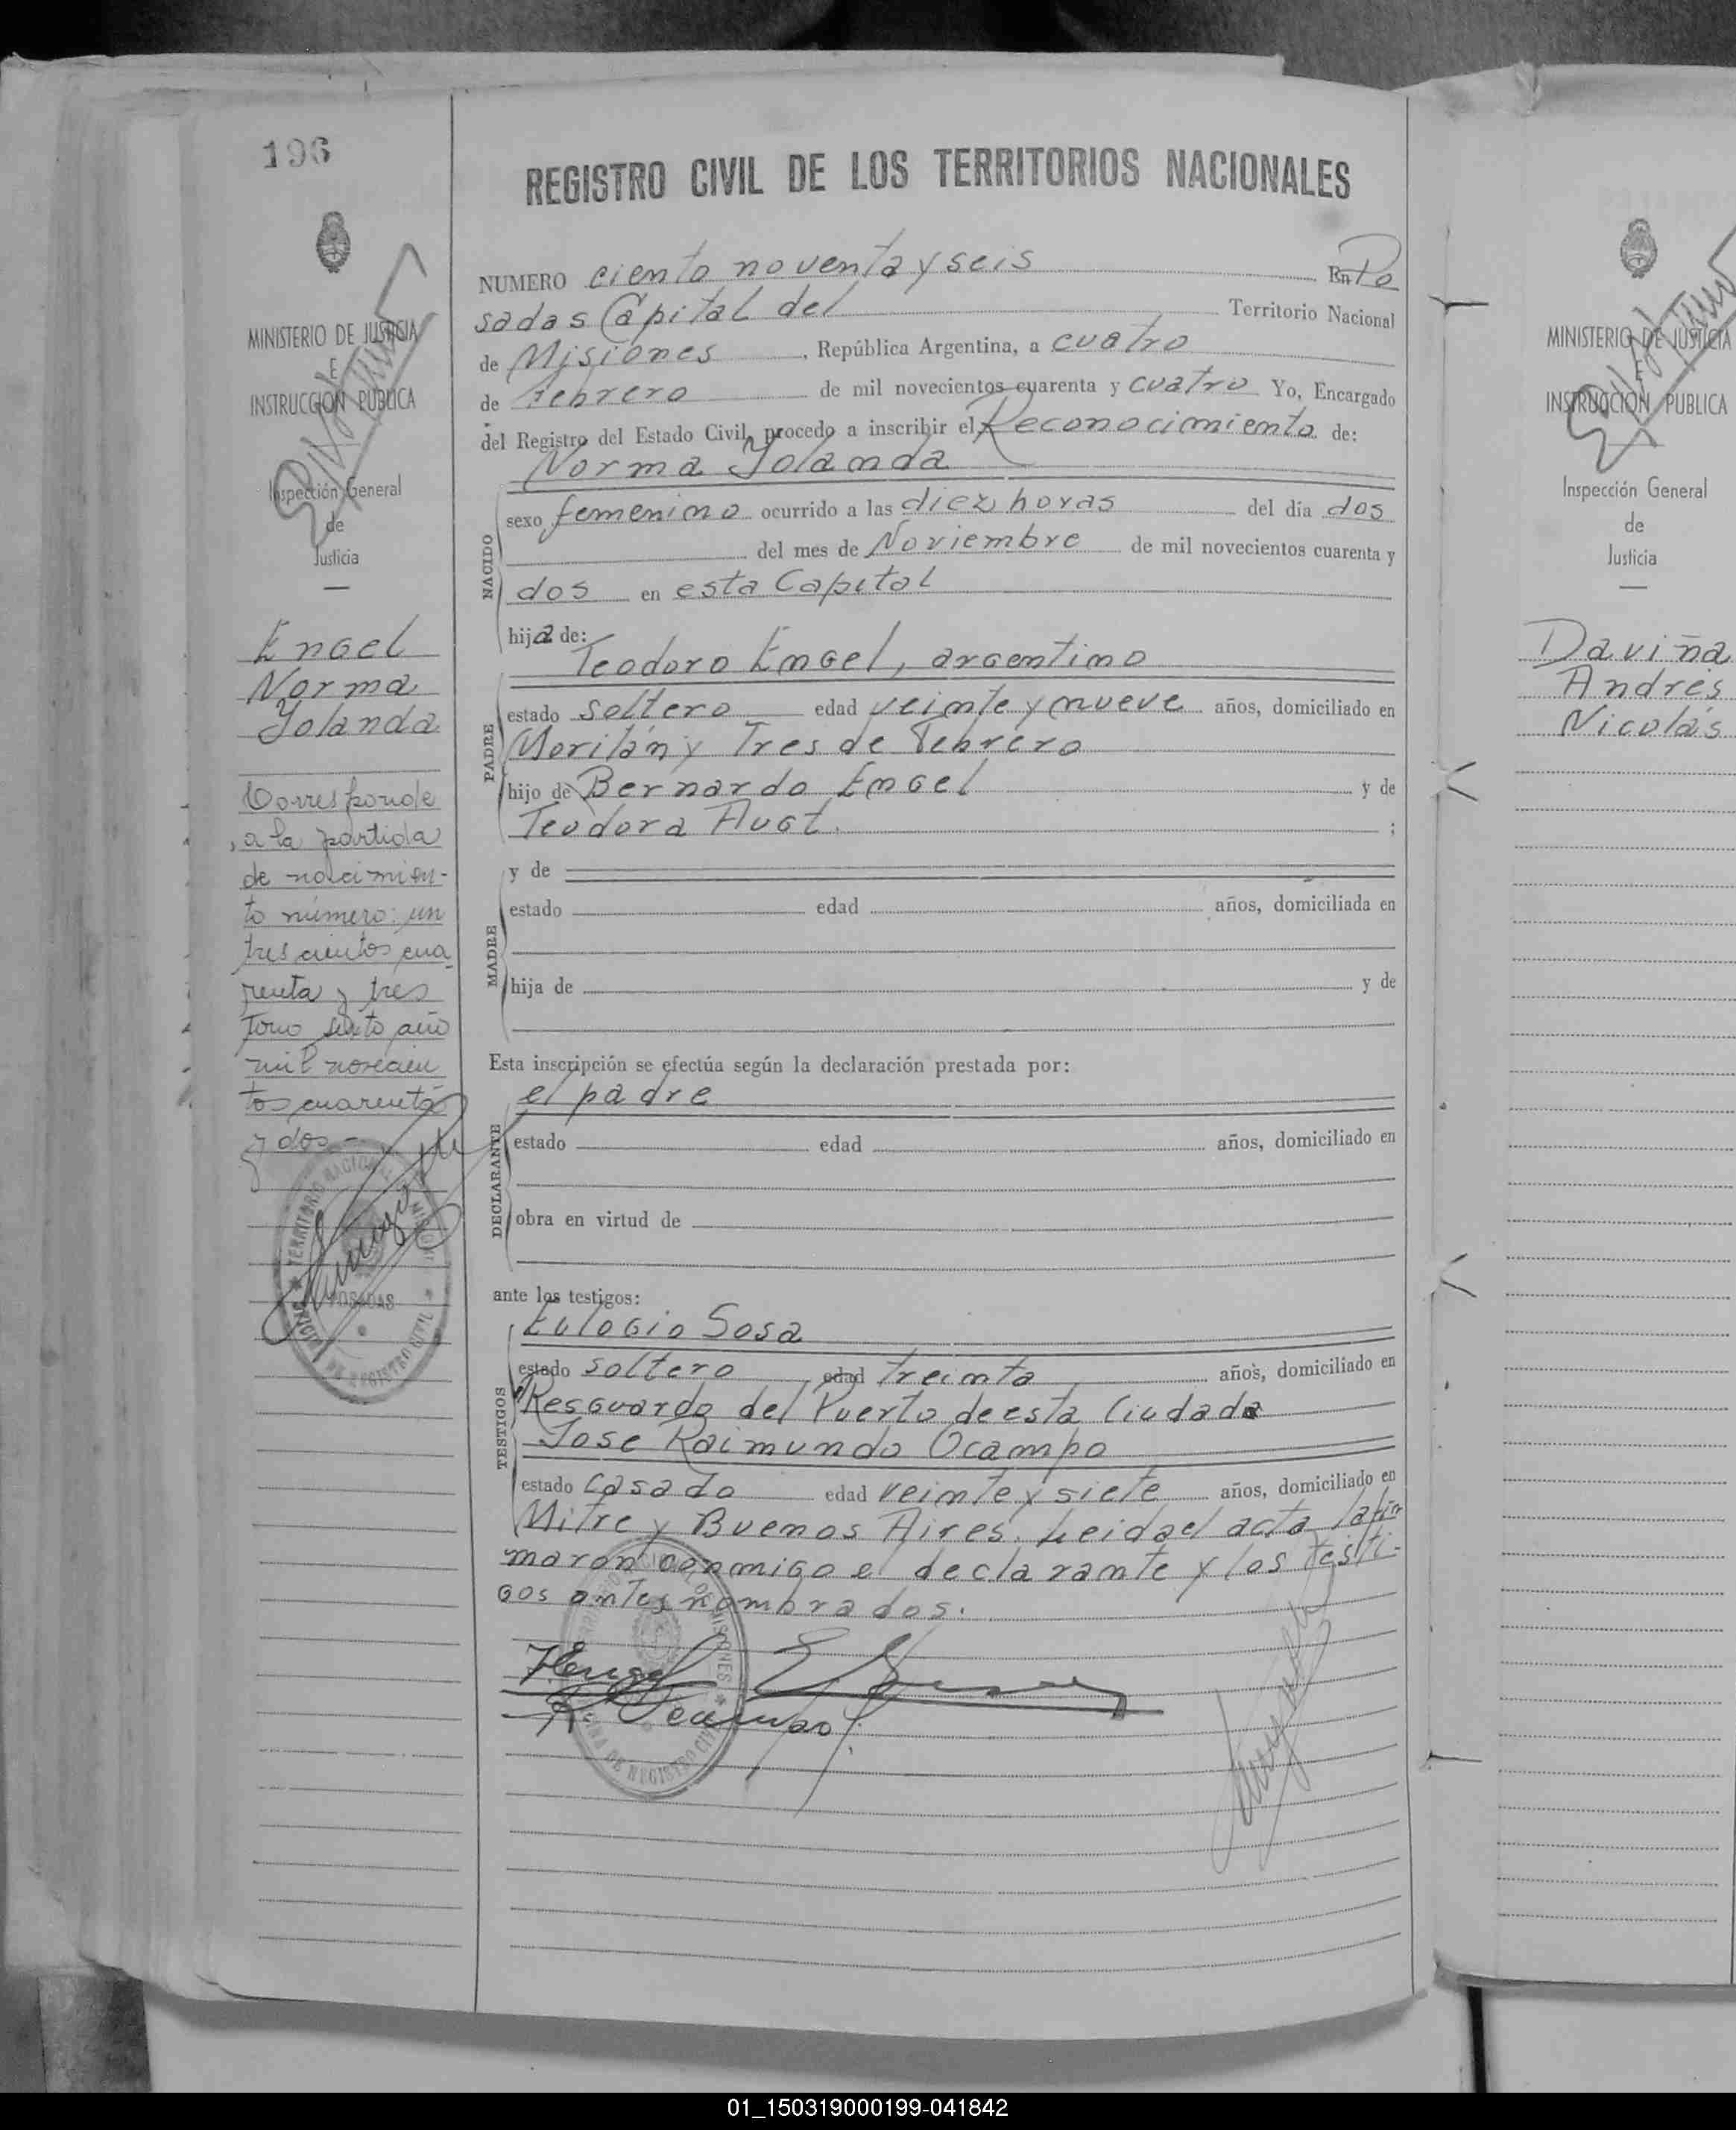 196
REGISTRO CIVIL DE LOS TERRITORIOS NACIONALES
MINISTERIO DE JUSTICIA
E
INSTRUCCIÓN PUBLICA
Inspección General
de
Justicia
Engel
Norma
Yolanda
Corresponde
a la partida
de nacimien-
to número: un
trescientos cua
renta y tres
Tomo sexto año
mil novecien
tos cuarenta
y dos.-
NUMERO ciento noventa y seis En Po
sadas Capital del Territorio Nacional
de Misiones, República Argentina, a cuatro
de Febrero de mil novecientos cuarenta y cuatro Yo, Encargado
del Registro del Estado Civil, procedo a inscribir el Reconocimiento de:
Norma Yolanda
NACIDO
sexo femenino ocurrido a las diez horas del día dos
del mes de Noviembre de mil novecientos cuarenta y
dos en esta Capital
hija de:
Teodoro Engel, argentino
PADRE
estado soltero edad veinte y nueve años, domiciliado en
y Tres de Febrero
hijo de Bernardo Engel y de
Teodora Augt.;
y de
MADRE
estado edad años, domiciliada en
hija de y de
Esta inscripción se efectúa según la declaración prestada por:
el padre
DECLARANTE
estado edad años, domiciliado en
obra en virtud de
ante los testigos:
Eulogio Sosa
TESTIGOS
estado soltero edad treinta años, domiciliado en
Resguardo del Puerto de esta Ciudad
Jose Raimundo Ocampo
estado casado edad veinte y siete años, domiciliado en
Mitre y Buenos Aires. Leida el acta la fir
maron conmigo el declarante y los testi-
gos antes nombrados.
R. Ocampo
TERRITORIO NACIONAL DE MISIONES
POSADAS
OFICINA DE REGISTRO CIVIL
MINISTERIO DE JUSTICIA
E
INSTRUCCIÓN PUBLICA
Inspección General
de
Justicia
Daviña
Andrés
Nicolás
01_150319000199-041842